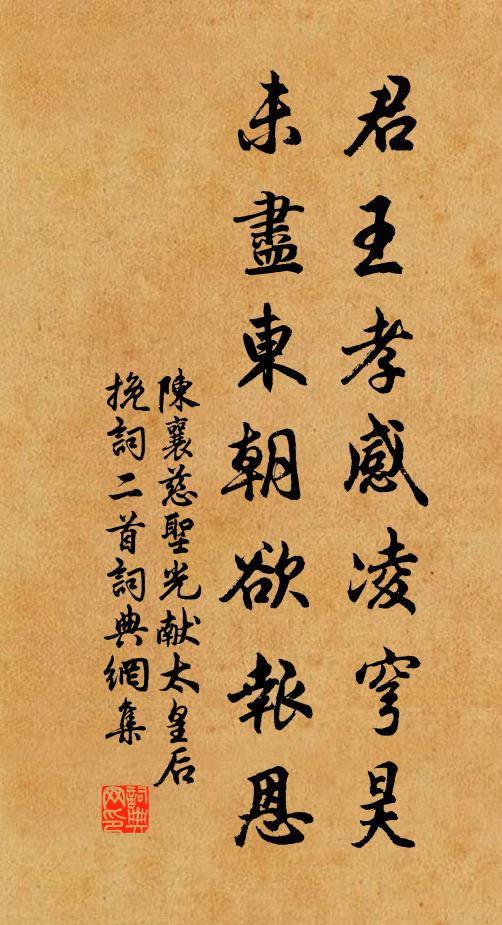 君王孝感凌穹昊
未盡東朝欲報恩
陳襄慈聖光献太皇后
挽詞二首詞典網集
詞典網印